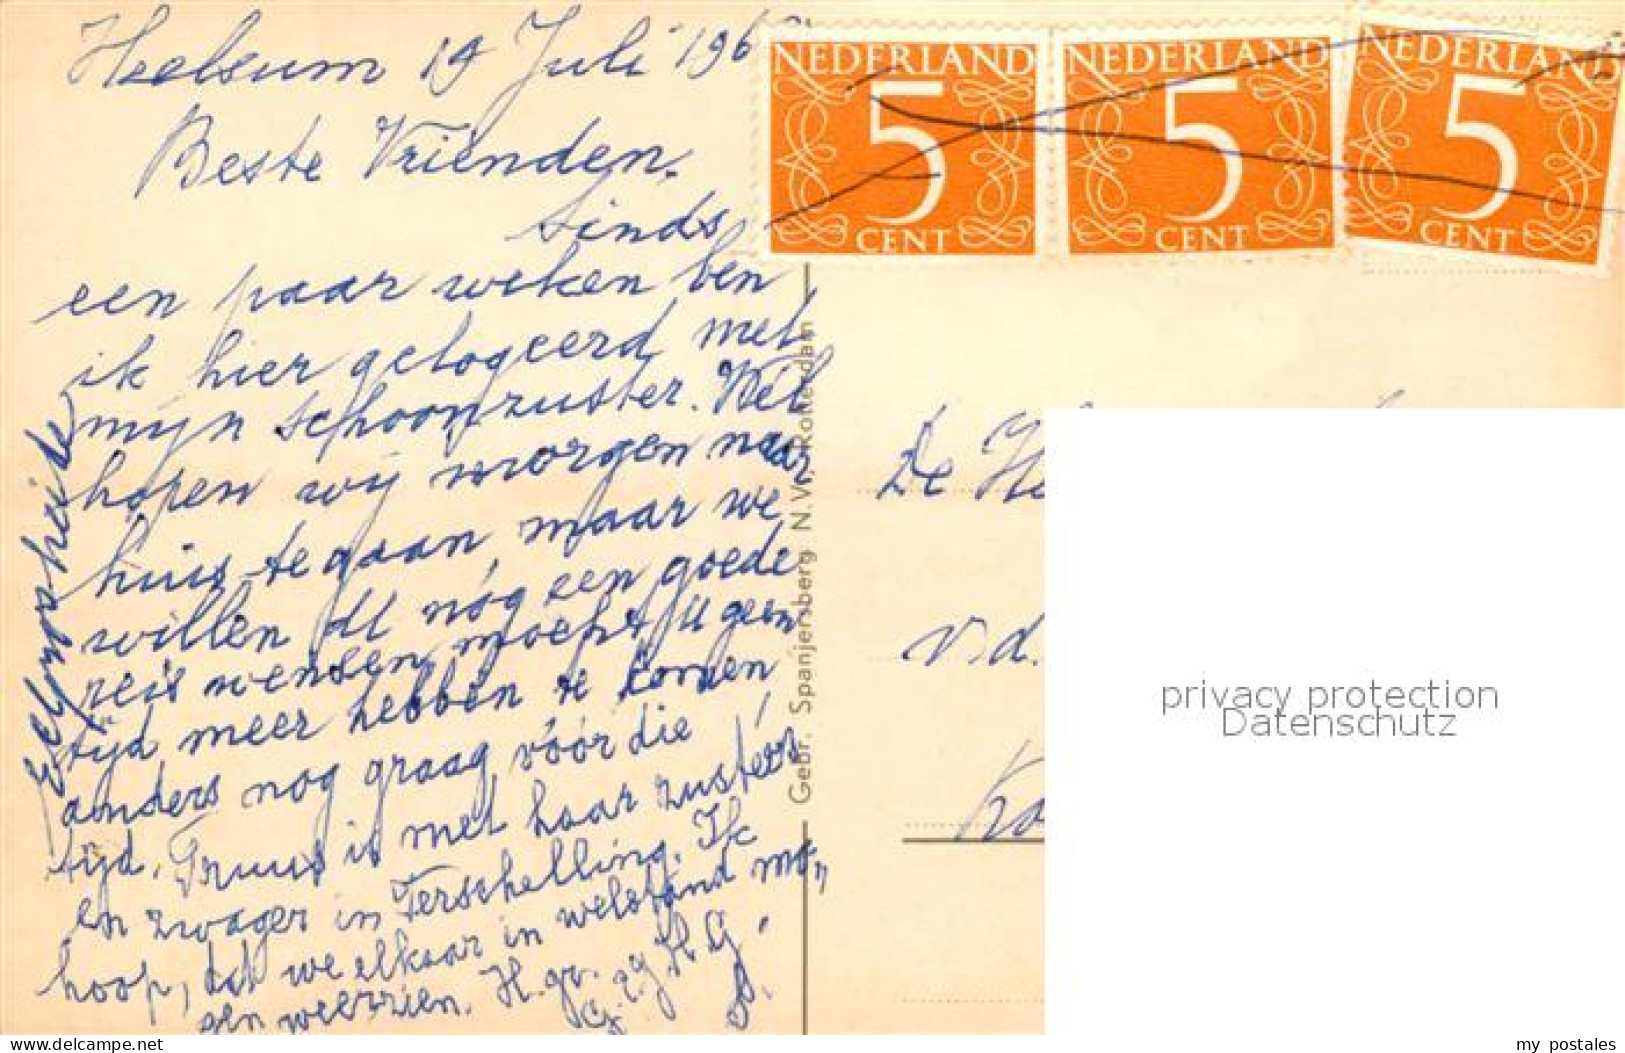 Heelsum 19 Juli 196
Beste Vrienden.
Sinds
een paar weken ben
ik hier gelogeerd met
mijn schoonzuster. Wel
hopen wij morgen naar
huis te gaan, maar we
willen U nog een goede
reis wensen mocht U geen
tijd meer hebben te komen,
anders nog graag vóór die
tijd. Truus is met haar zusters
en zwager in Terschelling. Ik
hoop, dat we elkaar in welstand mo-
gen weerzien. H. gr.
NEDERLAND
5
CENT
NEDERLAND
5
CENT
NEDERLAND
5
CENT
Gebr. Spanjersberg N.V., Rotterdam
De He
v.d.
Ko
privacy protection
Datenschutz
delcampe.net
my_postales